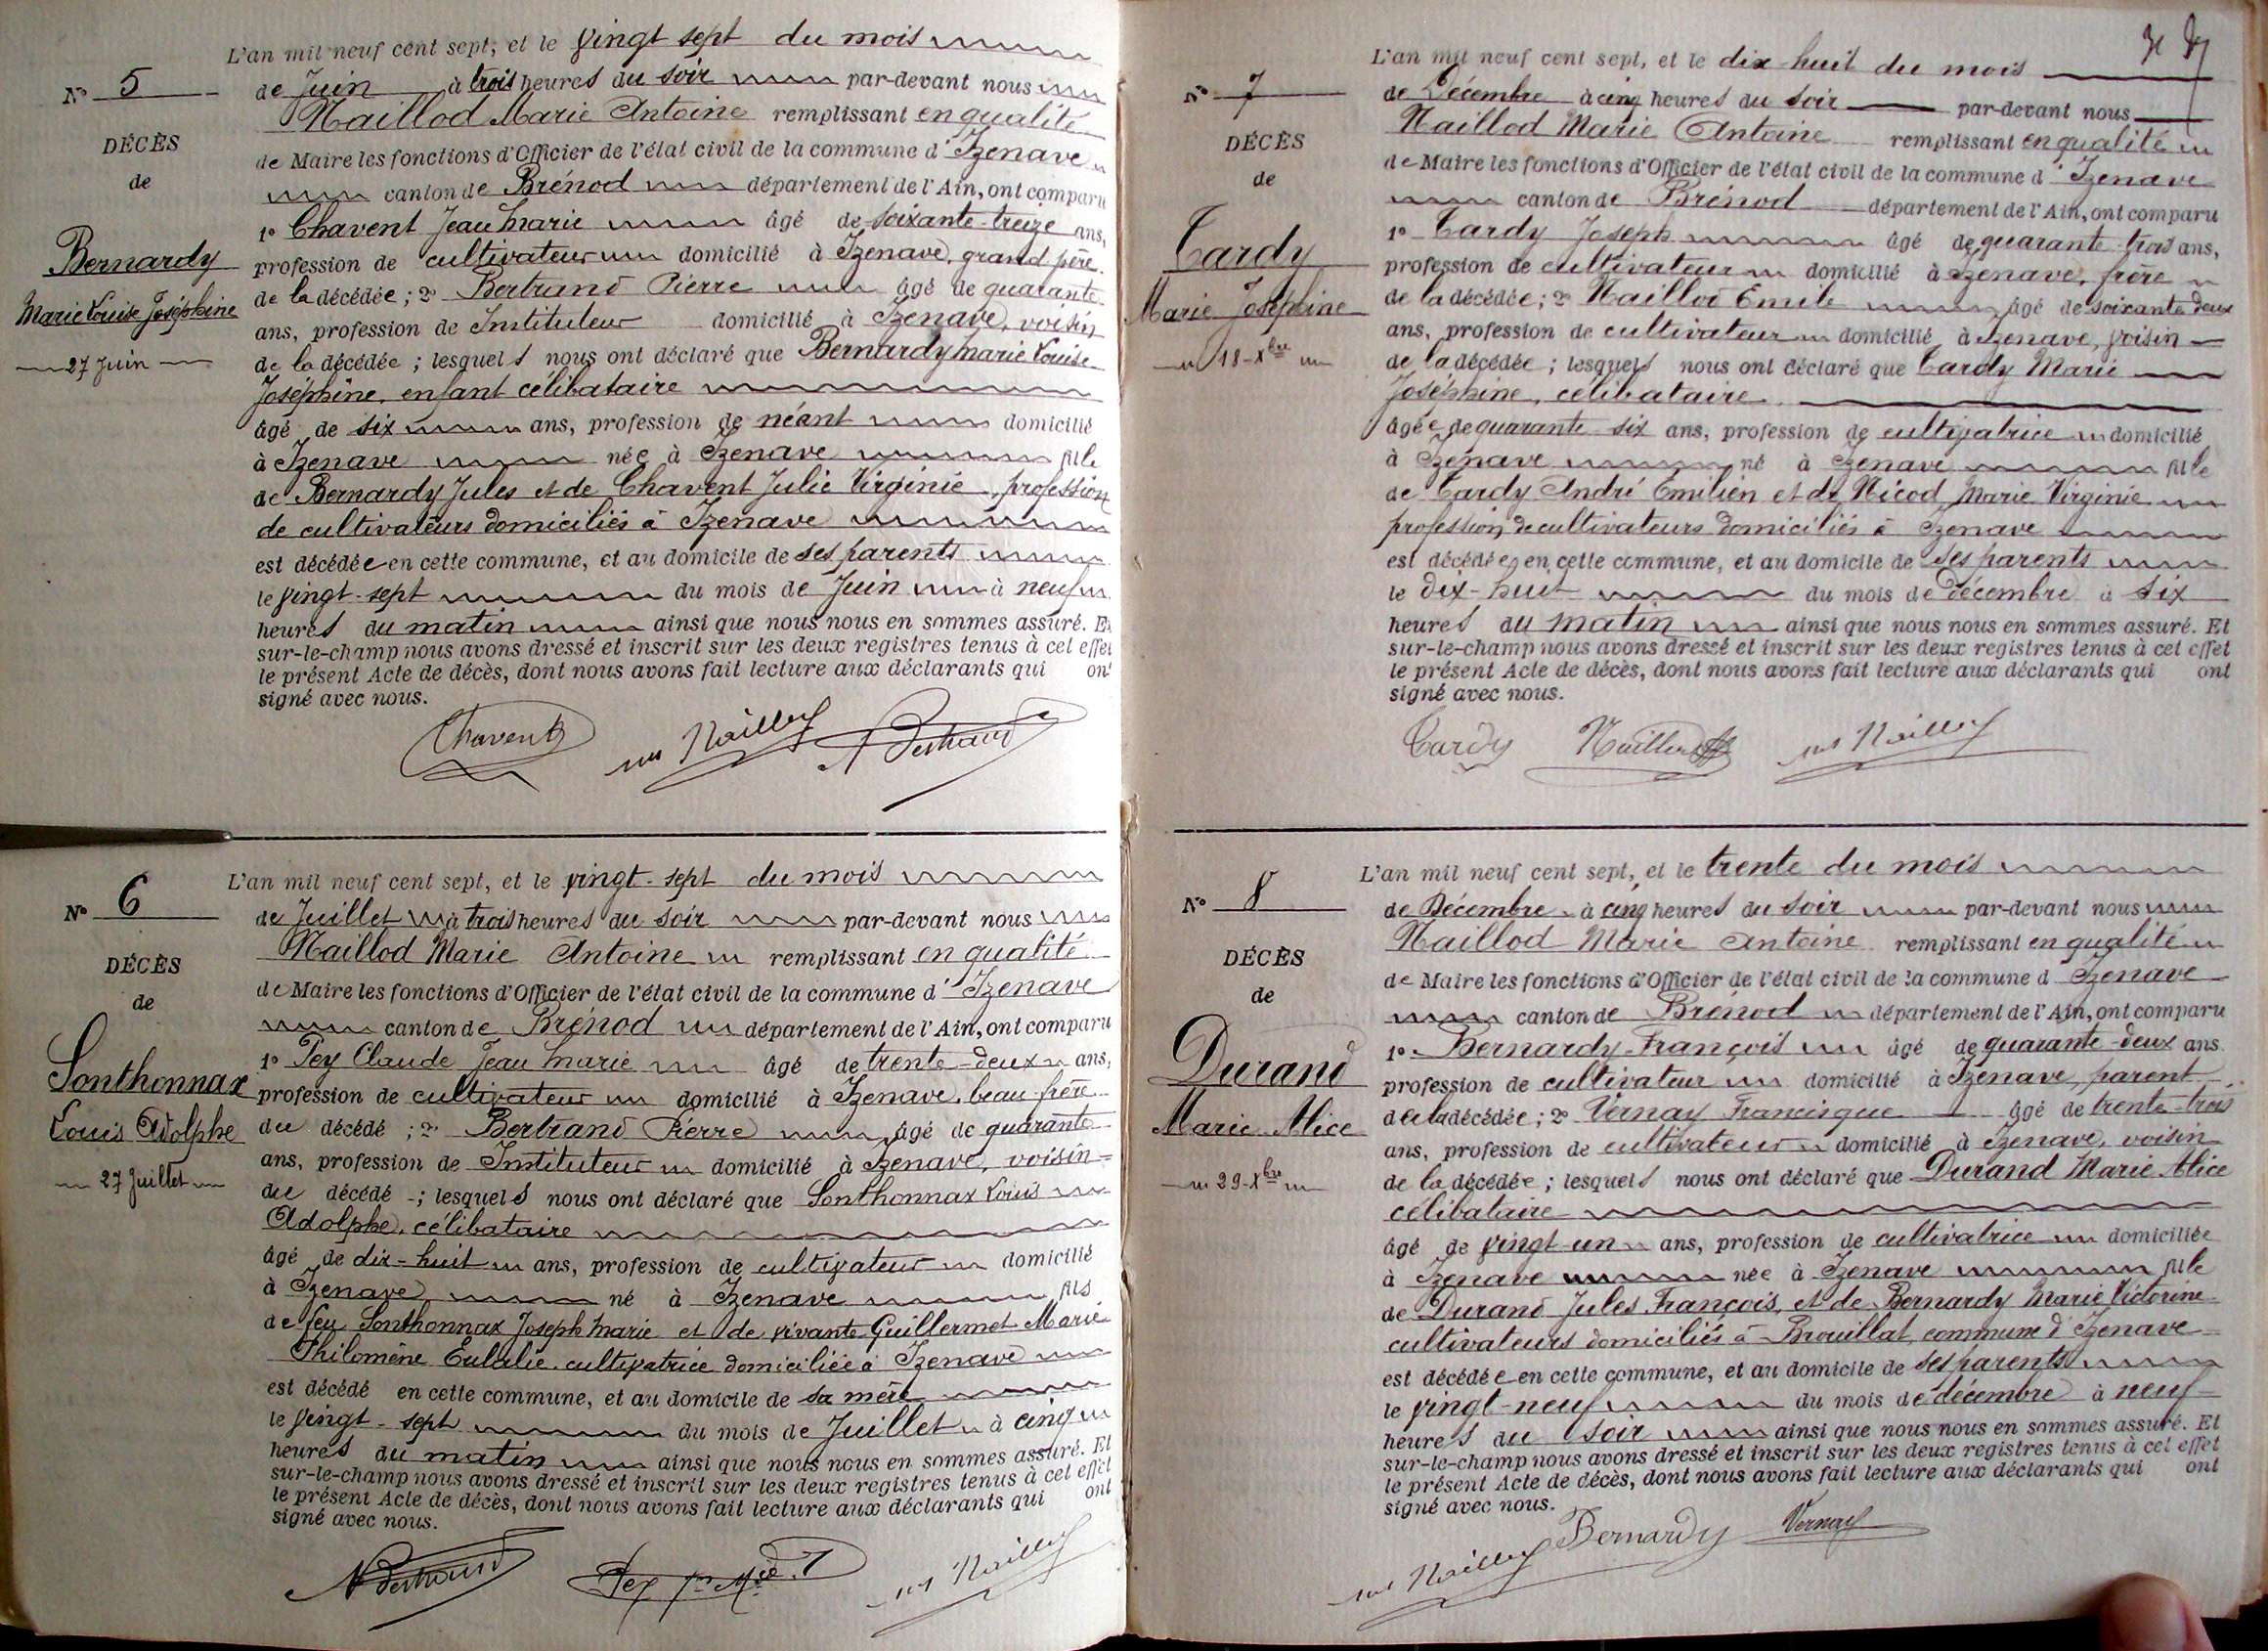 L'an mil neuf cent sept, et le vingt sept du mois
N° 5
de Juin à trois heures du soir par-devant nous
Maillod Marie Antoine remplissant en qualité
DÉCÈS
de Maire les fonctions d'Officier de l'état civil de la commune d'Izenave
de
canton de Brénod département de l'Ain, ont comparu
1° Chavent Jean Marie âgé de soixante-treize ans,
Bernardy
profession de cultivateur domicilié à Izenave, grand père
Marie Louise Joséphine
de la décédée ; 2° Bertrand Pierre âgé de quarante
ans, profession de Instituteur domicilié à Izenave, voisin
27 Juin
de la décédée ; lesquels nous ont déclaré que Bernardy Marie Louise
Joséphine, enfant célibataire
âgé de six ans, profession de néant domicilié
à Izenave née à Izenave fille
de Bernardy Jules et de Chavent Julie Virginie, profession
de cultivateurs domiciliés à Izenave
est décédée en cette commune, et au domicile de ses parents
le vingt-sept du mois de Juin à neuf
heures du matin ainsi que nous nous en sommes assuré. Et
sur-le-champ nous avons dressé et inscrit sur les deux registres tenus à cet effet
le présent Acte de décès, dont nous avons fait lecture aux déclarants qui ont
signé avec nous.
Chavent Maillod Bertrand
L'an mil neuf cent sept, et le vingt-sept du mois
N° 6
de Juillet à trois heures du soir par-devant nous
Maillod Marie Antoine remplissant en qualité
DÉCÈS
de Maire les fonctions d'Officier de l'état civil de la commune d'Izenave
de
canton de Brénod département de l'Ain, ont comparu
1° Pey Claude Jean Marie âgé de trente-deux ans,
Sonthonnax
profession de cultivateur domicilié à Izenave, beau-frère
Louis Adolphe
du décédé ; 2° Bertrand Pierre âgé de quarante
ans, profession de Instituteur domicilié à Izenave, voisin
27 Juillet
du décédé ; lesquels nous ont déclaré que Sonthonnax Louis
Adolphe, célibataire
âgé de dix-huit ans, profession de cultivateur domicilié
à Izenave né à Izenave fils
de feu Sonthonnax Joseph Marie et de vivante Guillermet Marie
Philomène Eulalie, cultivatrice domiciliée à Izenave
est décédé en cette commune, et au domicile de sa mère
le vingt-sept du mois de Juillet à cinq
heures du matin ainsi que nous nous en sommes assuré. Et
sur-le-champ nous avons dressé et inscrit sur les deux registres tenus à cet effet
le présent Acte de décès, dont nous avons fait lecture aux déclarants qui ont
signé avec nous.
Bertrand Pey Maillod
L'an mil neuf cent sept, et le dix-huit du mois
N° 7
de Décembre à cinq heures du soir par-devant nous
Maillod Marie Antoine remplissant en qualité
DÉCÈS
de Maire les fonctions d'Officier de l'état civil de la commune d'Izenave
de
canton de Brénod département de l'Ain, ont comparu
1° Tardy Joseph âgé de quarante-trois ans,
Tardy
profession de cultivateur domicilié à Izenave, frère
Marie Joséphine
de la décédée ; 2° Maillod Emile âgé de soixante deux
ans, profession de cultivateur domicilié à Izenave, voisin
18-Xbre
de la décédée ; lesquels nous ont déclaré que Tardy Marie
Joséphine, célibataire
âgée de quarante-six ans, profession de cultivatrice domicilié
à Izenave né à Izenave fille
de Tardy André Emilien et de Nicod Marie Virginie
profession de cultivateurs domiciliés à Izenave
est décédée en cette commune, et au domicile de ses parents
le dix-huit du mois de décembre à six
heures du matin ainsi que nous nous en sommes assuré. Et
sur-le-champ nous avons dressé et inscrit sur les deux registres tenus à cet effet
le présent Acte de décès, dont nous avons fait lecture aux déclarants qui ont
signé avec nous.
Tardy Maillod Maillod
L'an mil neuf cent sept, et le trente du mois
N° 8
de Décembre à cinq heures du soir par-devant nous
Maillod Marie Antoine remplissant en qualité
DÉCÈS
de Maire les fonctions d'Officier de l'état civil de la commune d Izenave
de
canton de Brénod département de l'Ain, ont comparu
1° Bernardy François âgé de quarante-deux ans
Durand
profession de cultivateur domicilié à Izenave, parent
Marie Alice
de la décédée ; 2° Vernay Francisque âgé de trente-trois
ans, profession de cultivateur domicilié à Izenave, voisin
29-Xbre
de la décédée ; lesquels nous ont déclaré que Durand Marie Alice
célibataire
âgé de vingt-un ans, profession de cultivatrice domiciliée
à Izenave née à Izenave fille
de Durand Jules François, et de Bernardy Marie Victorine
cultivateurs domiciliés à Brouillat, commune d'Izenave
est décédée en cette commune, et au domicile de ses parents
le vingt-neuf du mois de décembre à neuf
heures du soir ainsi que nous nous en sommes assuré. Et
sur-le-champ nous avons dressé et inscrit sur les deux registres tenus à cet effet
le présent Acte de décès, dont nous avons fait lecture aux déclarants qui ont
signé avec nous.
Maillod Bernardy Vernay